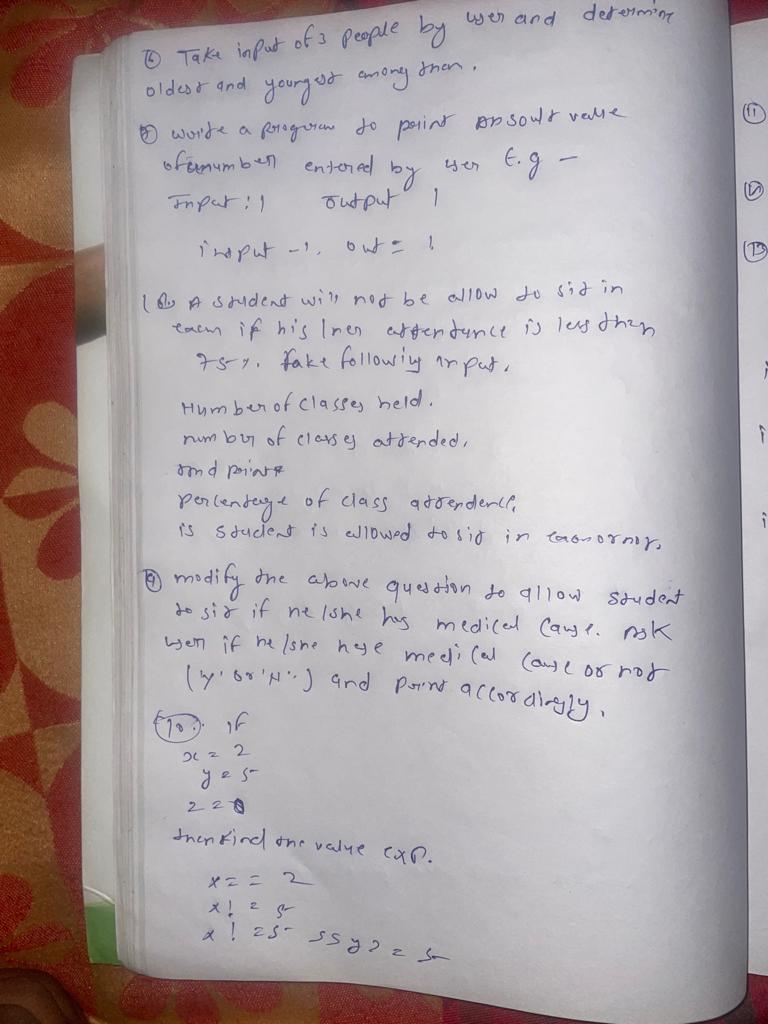 ⑥ Take input of 3 people by user and determine
oldest and youngest among them.
write a program to print Absolut value
of number entered by user E.g —
Input: 1 output 1
input -1. out = 1
A student will not be allow to sit in
exam if his/her attendance is less than
75%. Take following input.
Number of classes held.
number of classes attended.
and print
percentage of class attendence.
is student is allowed to sit in exam or not.
⑨ modify the above question to allow student
to sit if he/she has medical cause. Ask
user if he/she have medical cause or not
('Y' or 'N') and print accordingly.
10. if
x = 2
y = 5
z = 0
then find the value exp.
x = = 2
x ! = 5
x ! = 5 && y > = 5
11
12
13